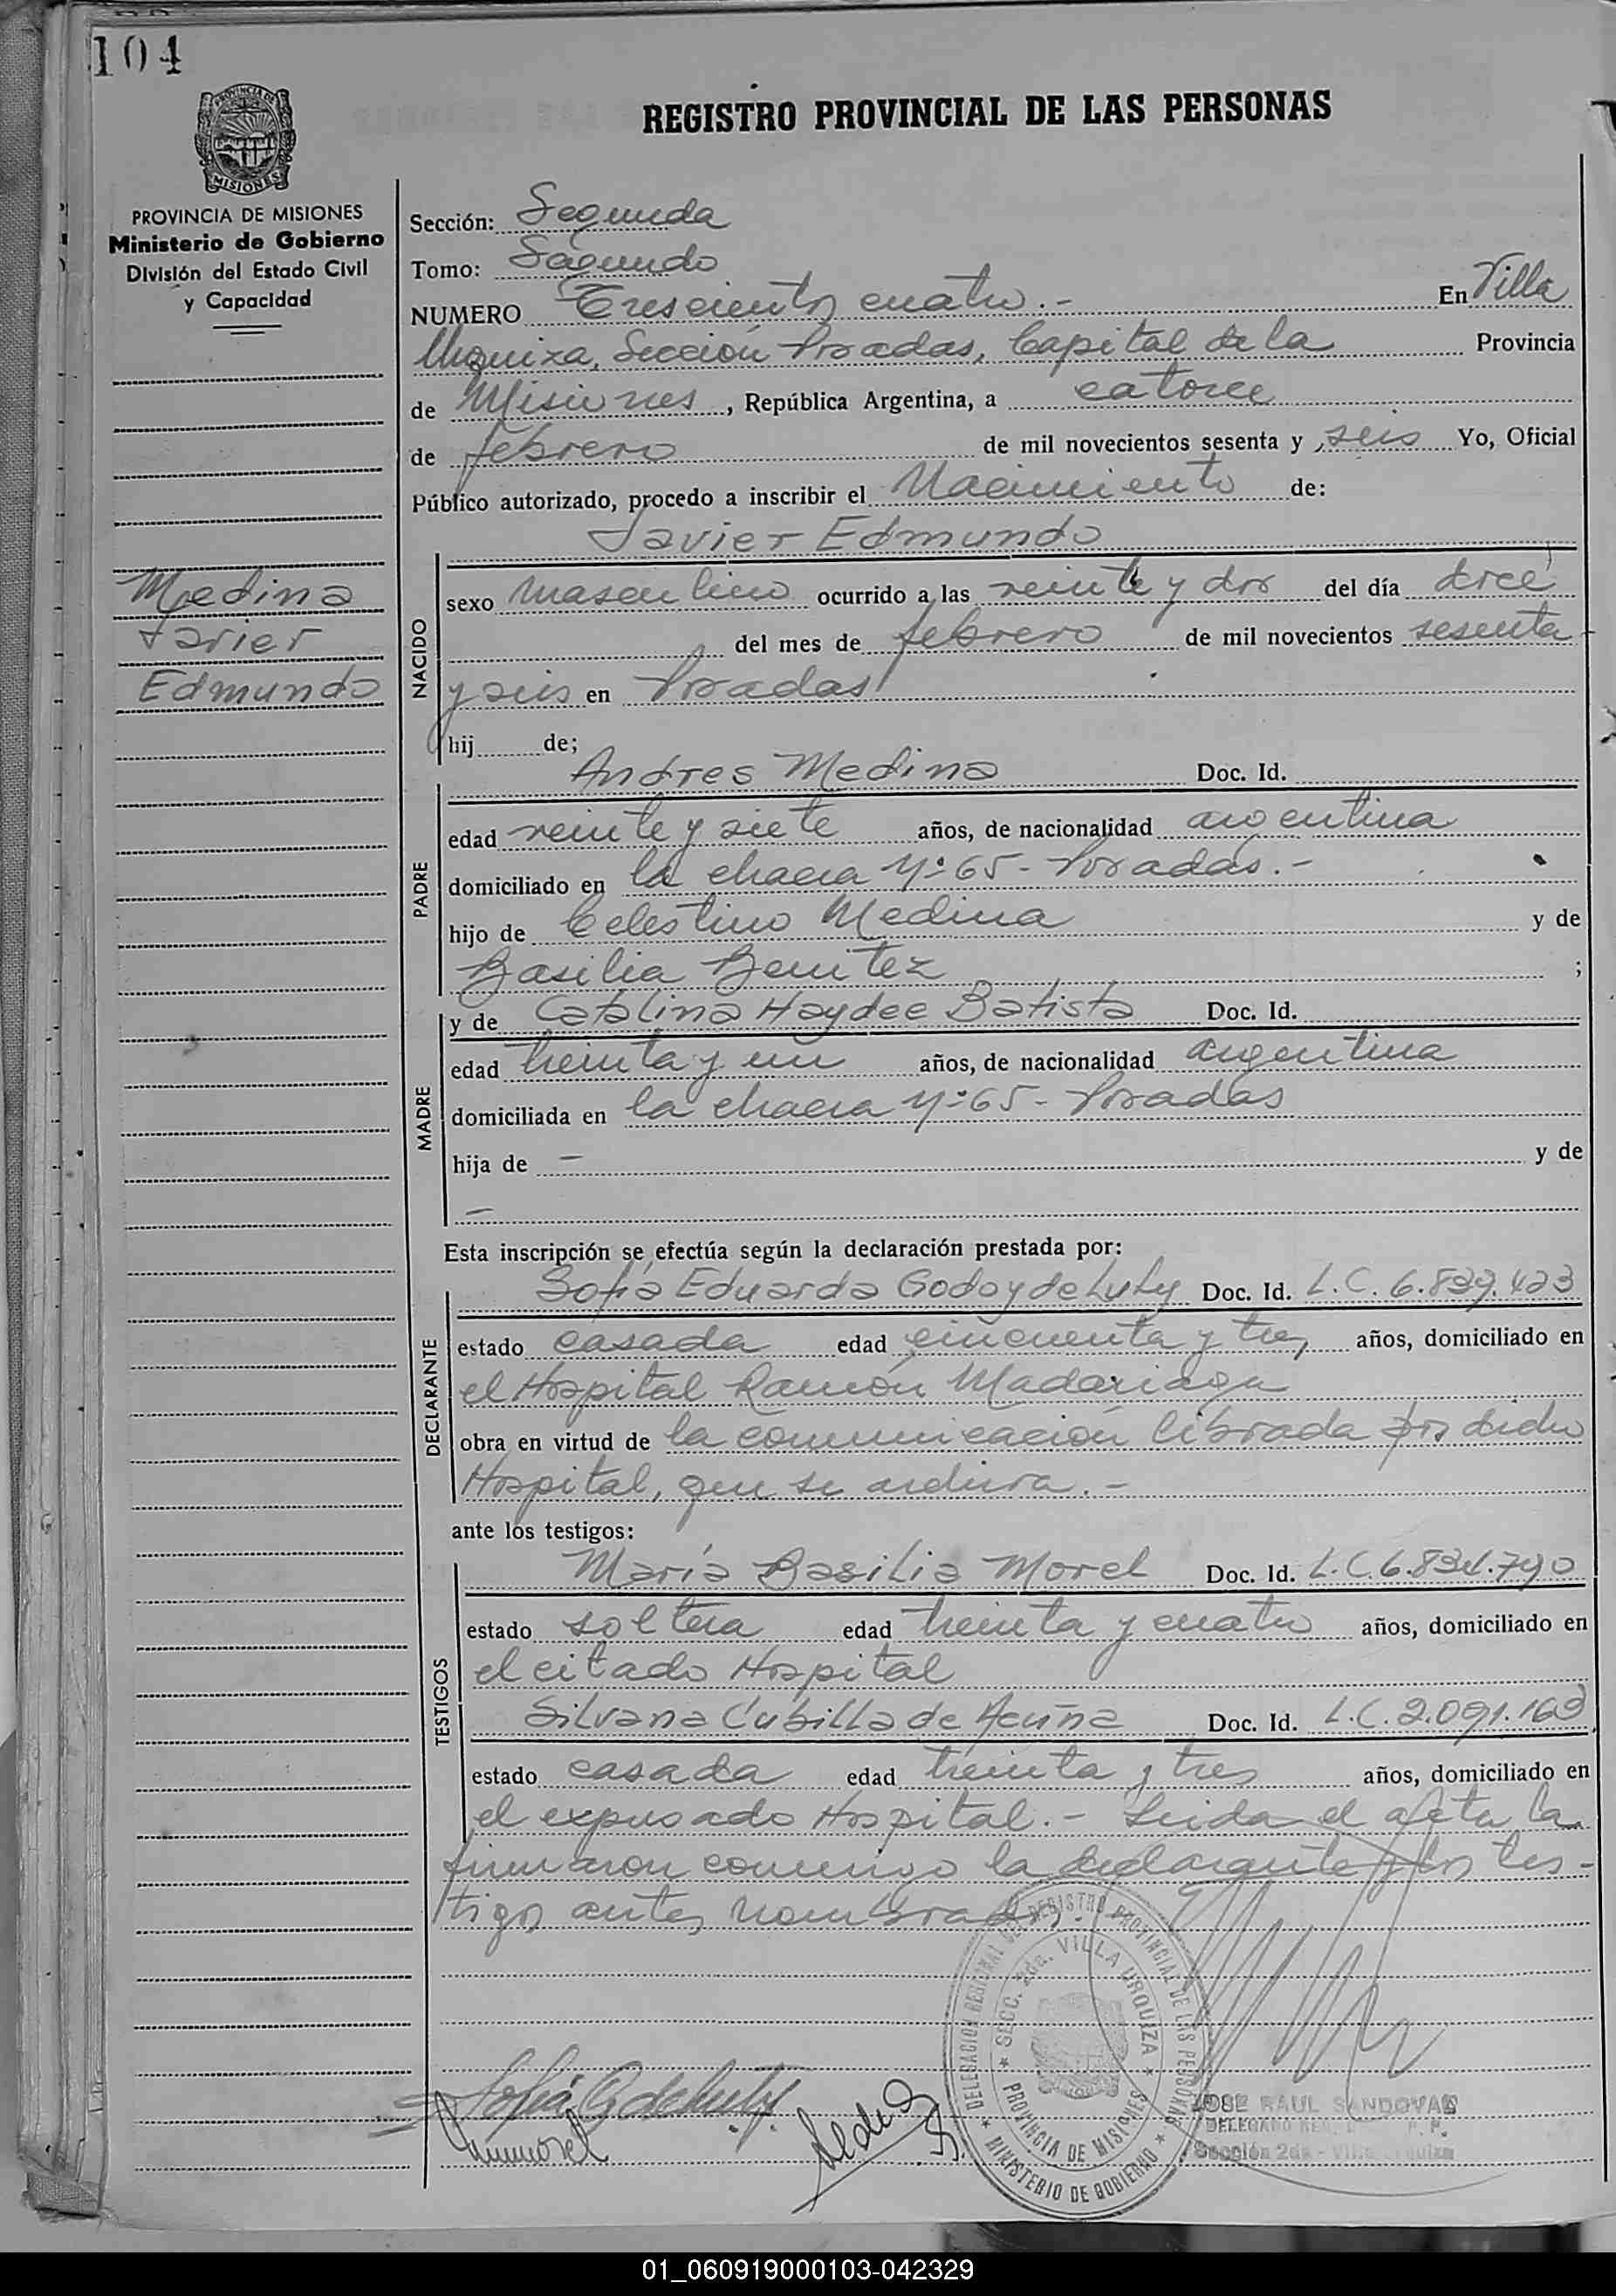 104
REGISTRO PROVINCIAL DE LAS PERSONAS
PROVINCIA DE
MISIONES
PROVINCIA DE MISIONES
Ministerio de Gobierno
División del Estado Civil
y Capacidad
Medina
Javier
Edmundo
Sección: Segunda
Tomo: Segundo
NUMERO Trescientos cuatro.- En Villa
Urquiza, Sección Posadas, Capital de la Provincia
de Misiones, República Argentina, a catorce
de febrero de mil novecientos sesenta y seis Yo, Oficial
Público autorizado, procedo a inscribir el Nacimiento de:
Javier Edmundo
NACIDO
sexo masculino ocurrido a las veinte y dos del día doce
del mes de febrero de mil novecientos sesenta
y seis en Posadas
hij de;
PADRE
Andres Medina Doc. Id.
edad veinte y siete años, de nacionalidad argentina
domiciliado en la chacra Nº 65 - Posadas.-
hijo de Celestino Medina y de
Basilia Benitez ;
MADRE
y de Catalina Haydee Batista Doc. Id.
edad treinta y un años, de nacionalidad argentina
domiciliada en la chacra Nº 65 - Posadas
hija de - y de
-
Esta inscripción se efectúa según la declaración prestada por:
DECLARANTE
Sofia Eduarda Godoy de Doc. Id. L.C. 6.839.423
estado casada edad cincuenta y tres años, domiciliado en
el Hospital Ramón Madariaga
obra en virtud de la comunicación librada por dicho
Hospital, que se archiva.-
ante los testigos:
TESTIGOS
María Basilia Morel Doc. Id. L.C. 6.834.790
estado soltera edad treinta y cuatro años, domiciliado en
el citado Hospital
Silvana Cubilla de Acuña Doc. Id. L.C. 2.091.163
estado casada edad treinta y tres años, domiciliado en
el expresado Hospital.- Leida el acta la
firmaron conmigo la declarante y los tes-
tigos antes nombrados.-
DELEGACION REGIONAL DEL REGISTRO PROVINCIAL DE LAS PERSONAS
SECC. 2da. VILLA URQUIZA
PROVINCIA DE MISIONES
MINISTERIO DE GOBIERNO
JOSE RAUL SANDOVAL
Sección 2da - Villa Urquiza
01_060919000103-042329